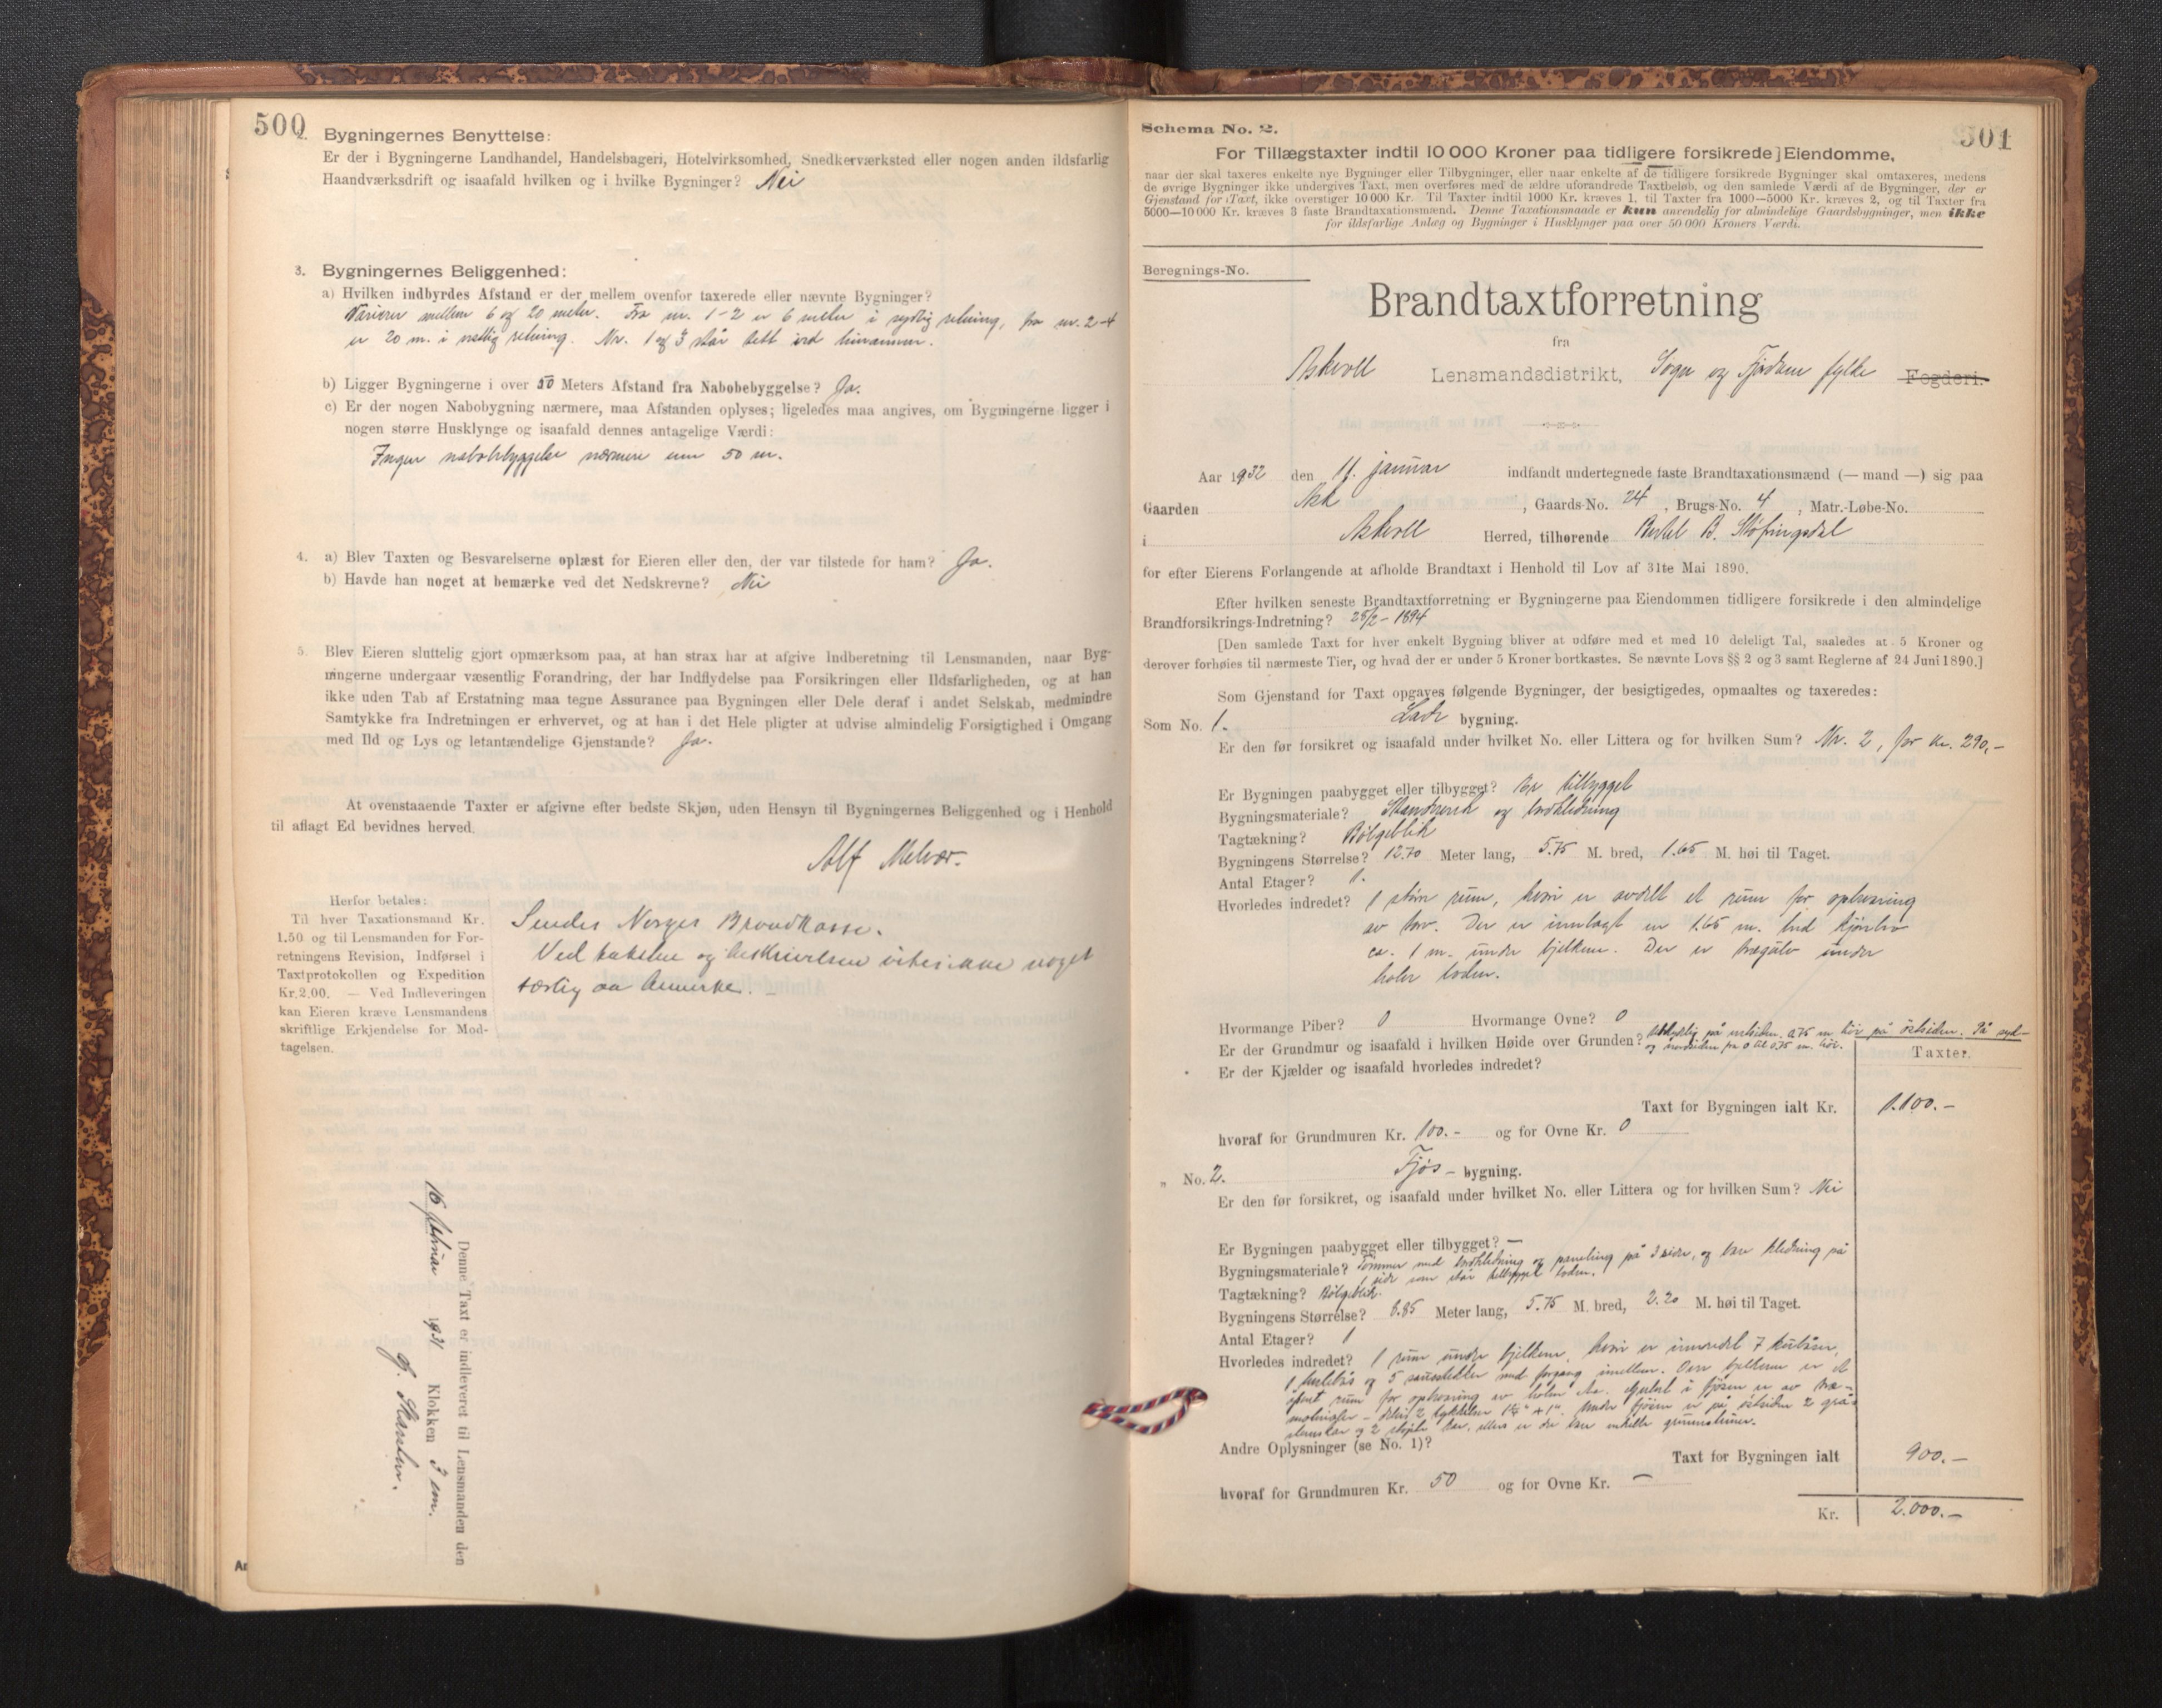 500
2. Bygningernes Benyttelse:
Er der i Bygningerne Landhandel, Handelsbageri, Hotelvirksomhed, Snedkerværksted eller nogen anden ildsfarlig
Haandværksdrift og isaafald hvilken og i hvilke Bygninger? Nei
3. Bygningernes Beliggenhed:
a) Hvilken indbyrdes Afstand er der mellem ovenfor taxerede eller nævnte Bygninger?
Varierer mellem 6 og 20 meter. Fra nr. 1-2 er 6 meter i sydlig retning, fra nr. 2-4
er 20 m. i vestlig retning. Nr. 1 og 3 står tett ved hinannen.
b) Ligger Bygningerne i over 50 Meters Afstand fra Nabobebyggelse? Ja.
c) Er der nogen Nabobygning nærmere, maa Afstanden oplyses; ligeledes maa angives, om Bygningerne ligger i
nogen større Husklynge og isaafald dennes antagelige Værdi:
Ingen nabobebyggelse nærmere enn 50 m.
4. a) Blev Taxten og Besvarelserne oplæst for Eieren eller den, der var tilstede for ham? Ja.
b) Havde han noget at bemærke ved det Nedskrevne? Nei
5. Blev Eieren sluttelig gjort opmærksom paa, at han strax har at afgive Indberetning til Lensmanden, naar Byg-
ningerne undergaar væsentlig Forandring, der har Indflydelse paa Forsikringen eller Ildsfarligheden, og at han
ikke uden Tab af Erstatning maa tegne Assurance paa Bygningen eller Dele deraf i andet Selskab, medmindre
Samtykke fra Indretningen er erhvervet, og at han i det Hele pligter at udvise almindelig Forsigtighed i Omgang
med Ild og Lys og letantændelige Gjenstande? Ja.
At ovenstaaende Taxter er afgivne efter bedste Skjøn, uden Hensyn til Bygningernes Beliggenhed og i Henhold
til aflagt Ed bevidnes herved.
Alf Melvær.
Herfor betales:
Til hver Taxationsmand Kr.
1.50 og til Lensmanden for For-
retningens Revision, Indførsel i
Taxtprotokollen og Expedition
Kr. 2.00. — Ved Indleveringen
kan Eieren kræve Lensmandens
skriftlige Erkjendelse for Mod-
tagelsen.
Sendes Norges Brandkasse.
Ved taksten og beskrivelsen vites ikke noget
særlig aa bemerke. –
Denne Taxt er indleveret til Lensmanden den
16 februar 1931 Klokken 3 em.
501
Schema No. 2.
For Tillægstaxter indtil 10 000 Kroner paa tidligere forsikrede Eiendomme,
naar der skal taxeres enkelte nye Bygninger eller Tilbygninger, eller naar enkelte af de tidligere forsikrede Bygninger skal omtaxeres, medens
de øvrige Bygninger ikke undergives Taxt, men overføres med de ældre uforandrede Taxtbeløb, og den samlede Værdi af de Bygninger, der er
Gjenstand for Taxt, ikke overstiger 10 000 Kr. Til Taxter indtil 1000 Kr. kræves 1, til Taxter fra 1000—5000 Kr. kræves 2, og til Taxter fra
5000—10 000 Kr. kræves 3 faste Brandtaxationsmænd. Denne Taxationsmaade er kun anvendelig for almindelige Gaardsbygninger, men ikke
for ildsfarlige Anlæg og Bygninger i Husklynger paa over 50 000 Kroners Værdi.
Beregnings-No.
Brandtaxtforretning
fra
Askvoll Lensmandsdistrikt, Sogn og Fjordane fylke Fogderi.
Aar 1932 den 11. januar indfandt undertegnede faste Brandtaxationsmænd (— mand —) sig paa
Gaarden Ask, Gaards-No. 24, Brugs-No. 4, Matr.-Løbe-No.
i Askvoll Herred, tilhørende Bertel B. Støfringsdal
for efter Eierens Forlangende at afholde Brandtaxt i Henhold til Lov af 31te Mai 1890.
Efter hvilken seneste Brandtaxtforretning er Bygningerne paa Eiendommen tidligere forsikrede i den almindelige
Brandforsikrings-Indretning? 25/2 - 1894
[Den samlede Taxt for hver enkelt Bygning bliver at udføre med et med 10 deleligt Tal, saaledes at 5 Kroner og
derover forhøies til nærmeste Tier, og hvad der er under 5 Kroner bortkastes. Se nævnte Lovs §§ 2 og 3 samt Reglerne af 24 Juni 1890.]
Som Gjenstand for Taxt opgaves følgende Bygninger, der besigtigedes, opmaaltes og taxeredes:
Som No. 1. Lade bygning.
Er den før forsikret og isaafald under hvilket No. eller Littera og for hvilken Sum? Nr. 2, for kr. 290,-
Er Bygningen paabygget eller tilbygget? Er tilbygget
Bygningsmateriale? Stenderverk og bordkledning
Tagtækning? Bølgeblik
Bygningens Størrelse? 12.70 Meter lang, 5.75 M. bred, 1.65 M. høi til Taget.
Antal Etager? 1.
Hvorledes indredet? 1 større rum, hvori er avdelt et rum for opbevaring
av Der er innlagt en 1.65 m. bred kjørebro
ca. 1 m. under bjelkene. Der er tregulv under
hele loden.
Hvormange Piber? 0 Hvormange Ovne? 0
Er der Grundmur og isaafald i hvilken Høide over Grunden? på vestsiden. 0.75 m. høi på østsiden. På syd-
og nordsiden fra 0 til 0.75 m. høi.
Er der Kjælder og isaafald hvorledes indredet?
Taxter.
Taxt for Bygningen ialt Kr. 1.100.-
hvoraf for Grundmuren Kr. 100.- og for Ovne Kr. 0
„ No. 2. Fjøs - bygning.
Er den før forsikret, og isaafald under hvilket No. eller Littera og for hvilken Sum? Nei
Er Bygningen paabygget eller tilbygget? —
Bygningsmateriale? Tømmer med bordkledning og paneling på 3 sider, og bare kledning på
1 side som står tilbygget loden.
Tagtækning? Bølgeblik.
Bygningens Størrelse? 8.85 Meter lang, 5.75 M. bred, 2.20 M. høi til Taget.
Antal Etager? 1
Hvorledes indredet? 1 rum under bjelkene, hvori er innredet 7 kubåser,
1 hestebås og 5 sauestekker med forgang imellem. Over bjelkene er et
åpent rum for opbevaring av halm o.l. Gulvet i fjøsen er av tre-
materialer – delvis 2 tykkelser 1¼" + 1". Under fjøsen er på østsiden 2 grå-
stenskar og 2 støpte kar, ellers er der bare enkelte grunnstener.
Andre Oplysninger (se No. 1)?
Taxt for Bygningen ialt 900.—
hvoraf for Grundmuren Kr. 50 og for Ovne Kr. —
Kr. 2.000.—